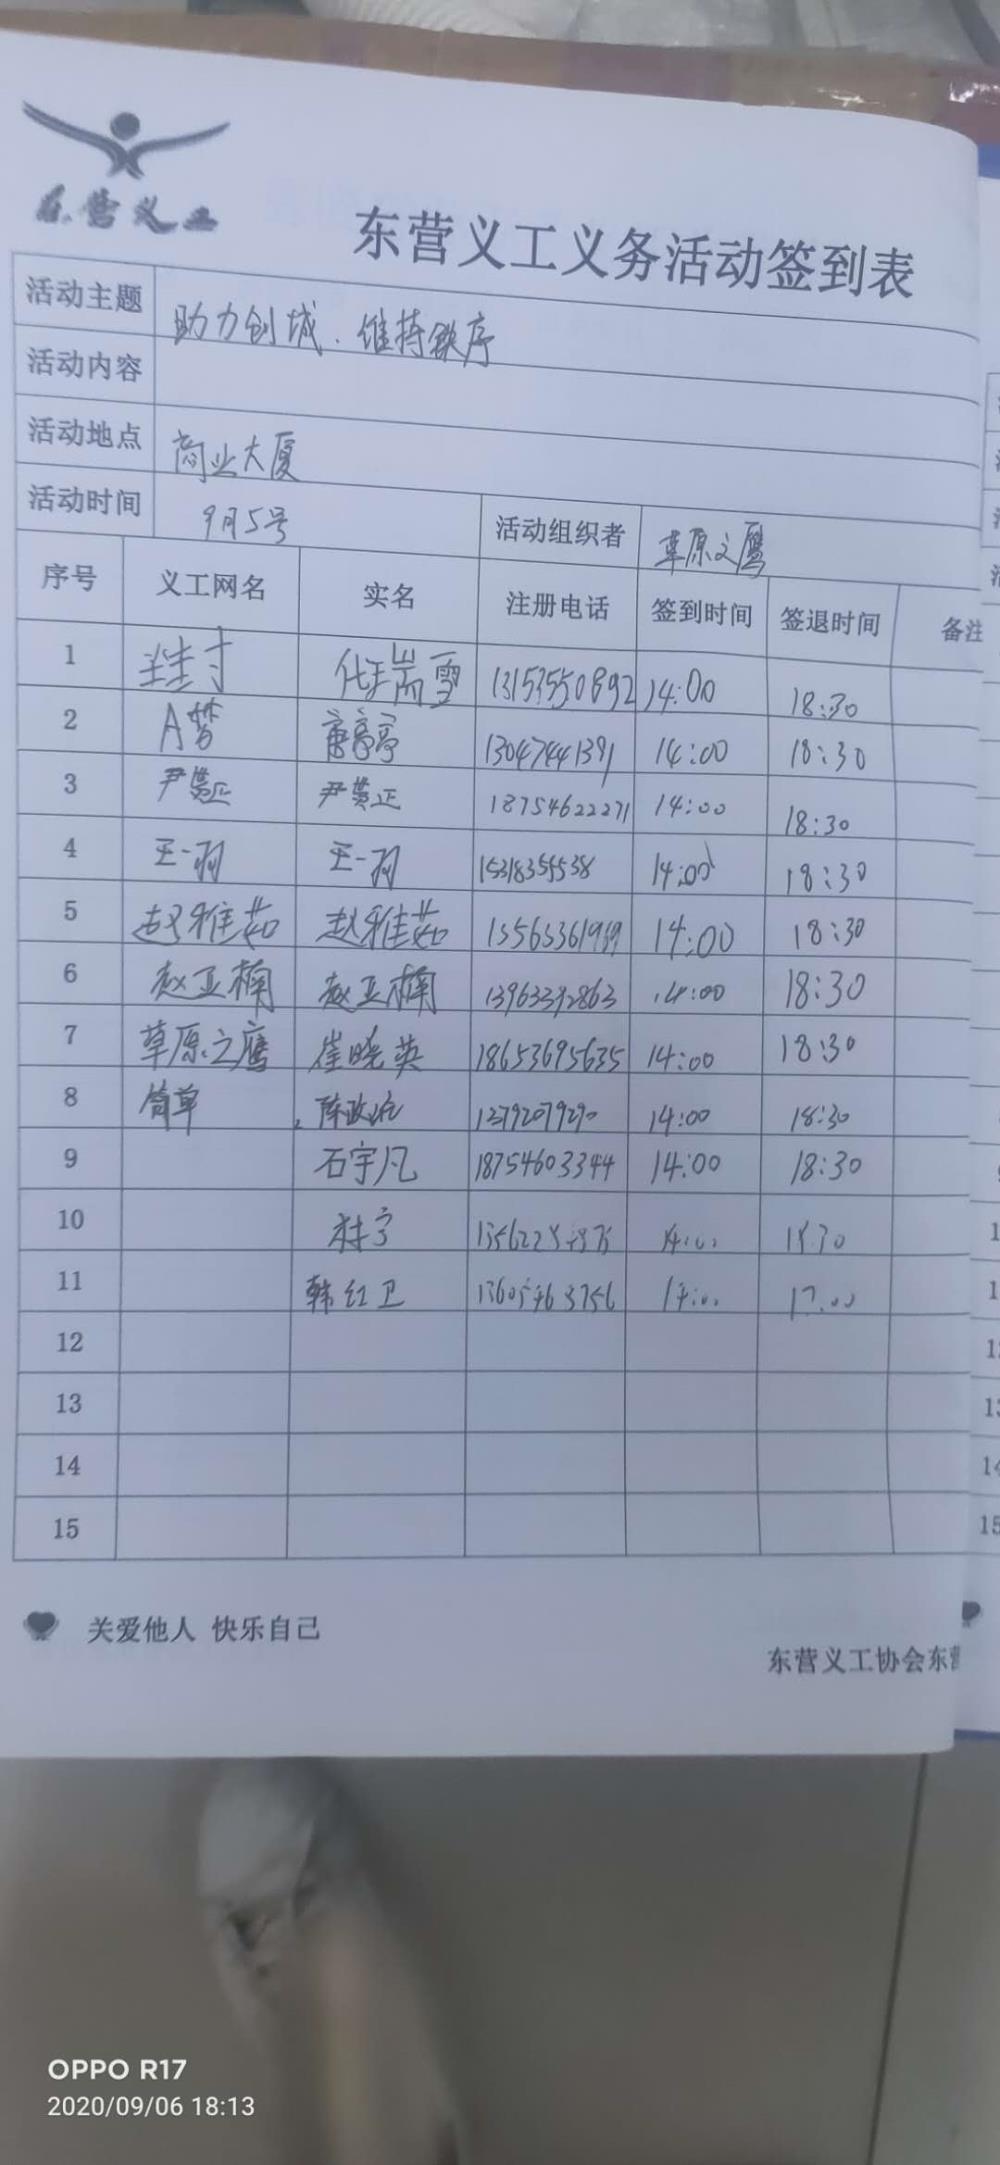 东营义工
东营义工义务活动签到表
活动主题 助力创城.维持秩序
活动内容
活动地点 商业大厦
活动时间 9月5号 活动组织者 草原之鹰
序号 义工网名 实名 注册电话 签到时间 签退时间 备注
1 瑞雪 13153550892 14:00 18:30
2 A梦 唐亭亭 13047441391 14:00 18:30
3 18754622271 14:00 18:30
4 王一羽 王一羽 15318355538 14:00 18:30
5 赵雅茹 赵雅茹 14:00 18:30
6 赵亚楠 赵亚楠 13963392863 14:00 18:30
7 草原之鹰 崔晓英 18653695635 14:00 18:30
8 简单 14:00 18:30
9 石宇凡 18754603344 14:00 18:30
10 18:30
11 韩红卫 14:00 17:00
12
13
14
15
关爱他人 快乐自己
东营义工协会东营
OPPO R17
2020/09/06 18:13